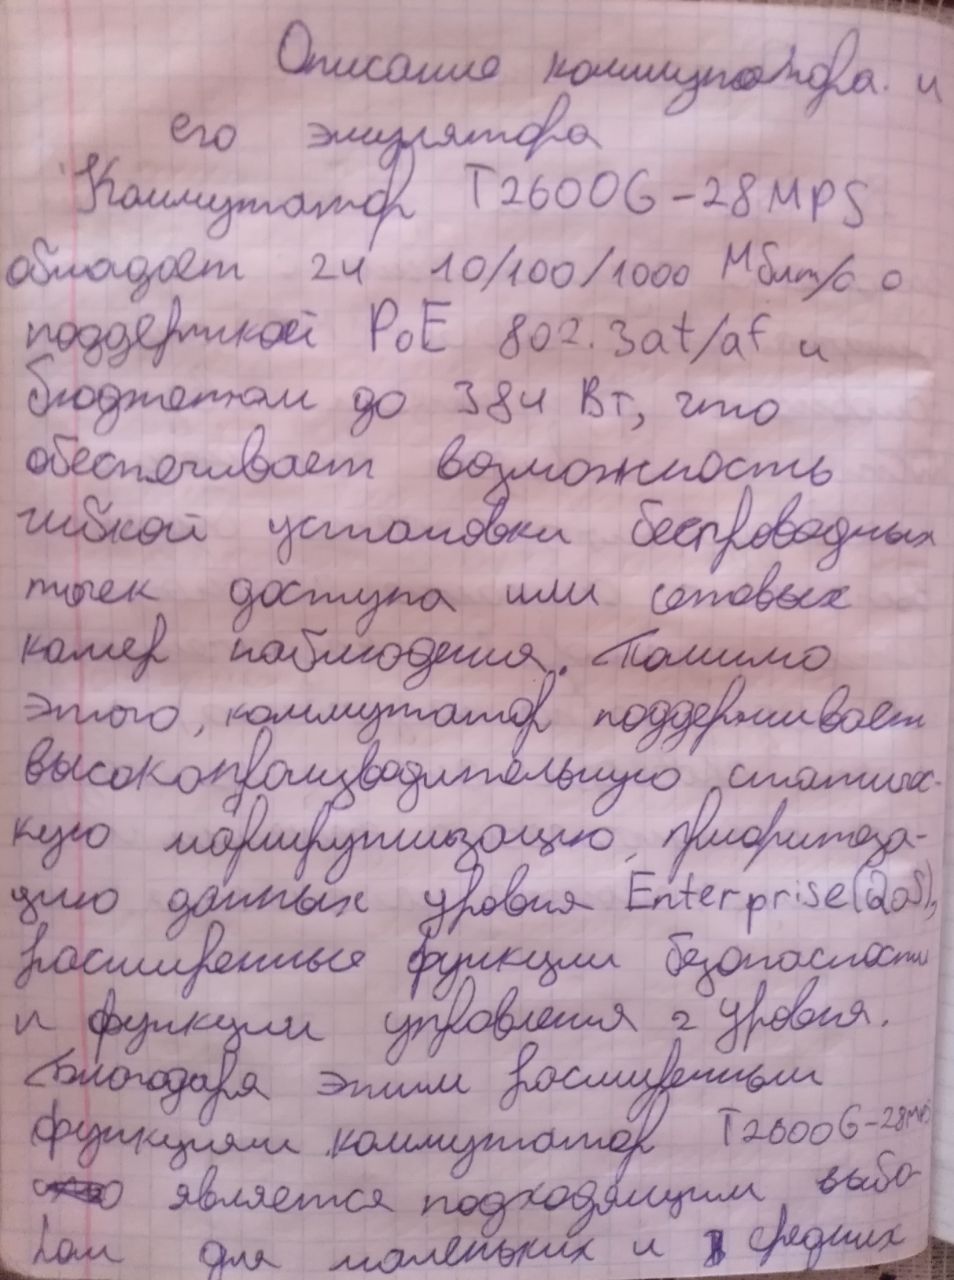 Описание коммутатора и
его эмулятора
Коммутатор T2600G-28MPS
обладает 24 10/100/1000 Мбит/с с
поддержкой PoE 802.3at/af и
бюджетом до 384 Вт, что
обеспечивает возможность
гибкой установки беспроводных
точек доступа или сетевых
камер наблюдения. Помимо
этого, коммутатор поддерживает
высокопроизводительную статичес-
кую маршрутизацию, приоритеза-
цию данных уровня Enterprise(QoS),
расширенные функции безопасности
и функции управления 2 уровня.
Благодаря этим расширенным
функциям коммутатор T2600G-28MPS
является подходящим выбо-
ром для маленьких и средних